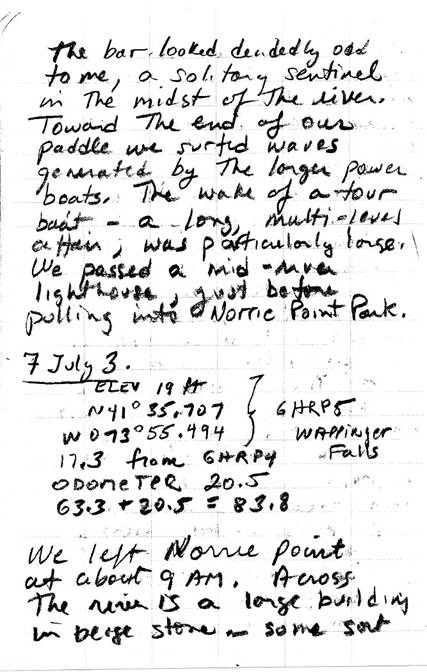 The bar looked decidedly odd
to me, a solitary sentinel
in the midst of the river.
Toward the end of our
paddle we surfed waves
generated by the larger power
boats. The wake of a tour
boat - a long, multi-level
affair, was particularly large.
We passed a mid-river
lighthouse, just before
pulling into Norrie Point Park.
7 July 3.
ELEV 19 ft
N41° 35.707
W 073° 55.494
GHRP5
Wappinger
Falls
17.3 from GHRP4
ODOMETER 20.5
63.3 + 20.5 = 83.8
We left Norrie Point
at about 9 AM. Across
the river is a large building
in beige stone - some sort